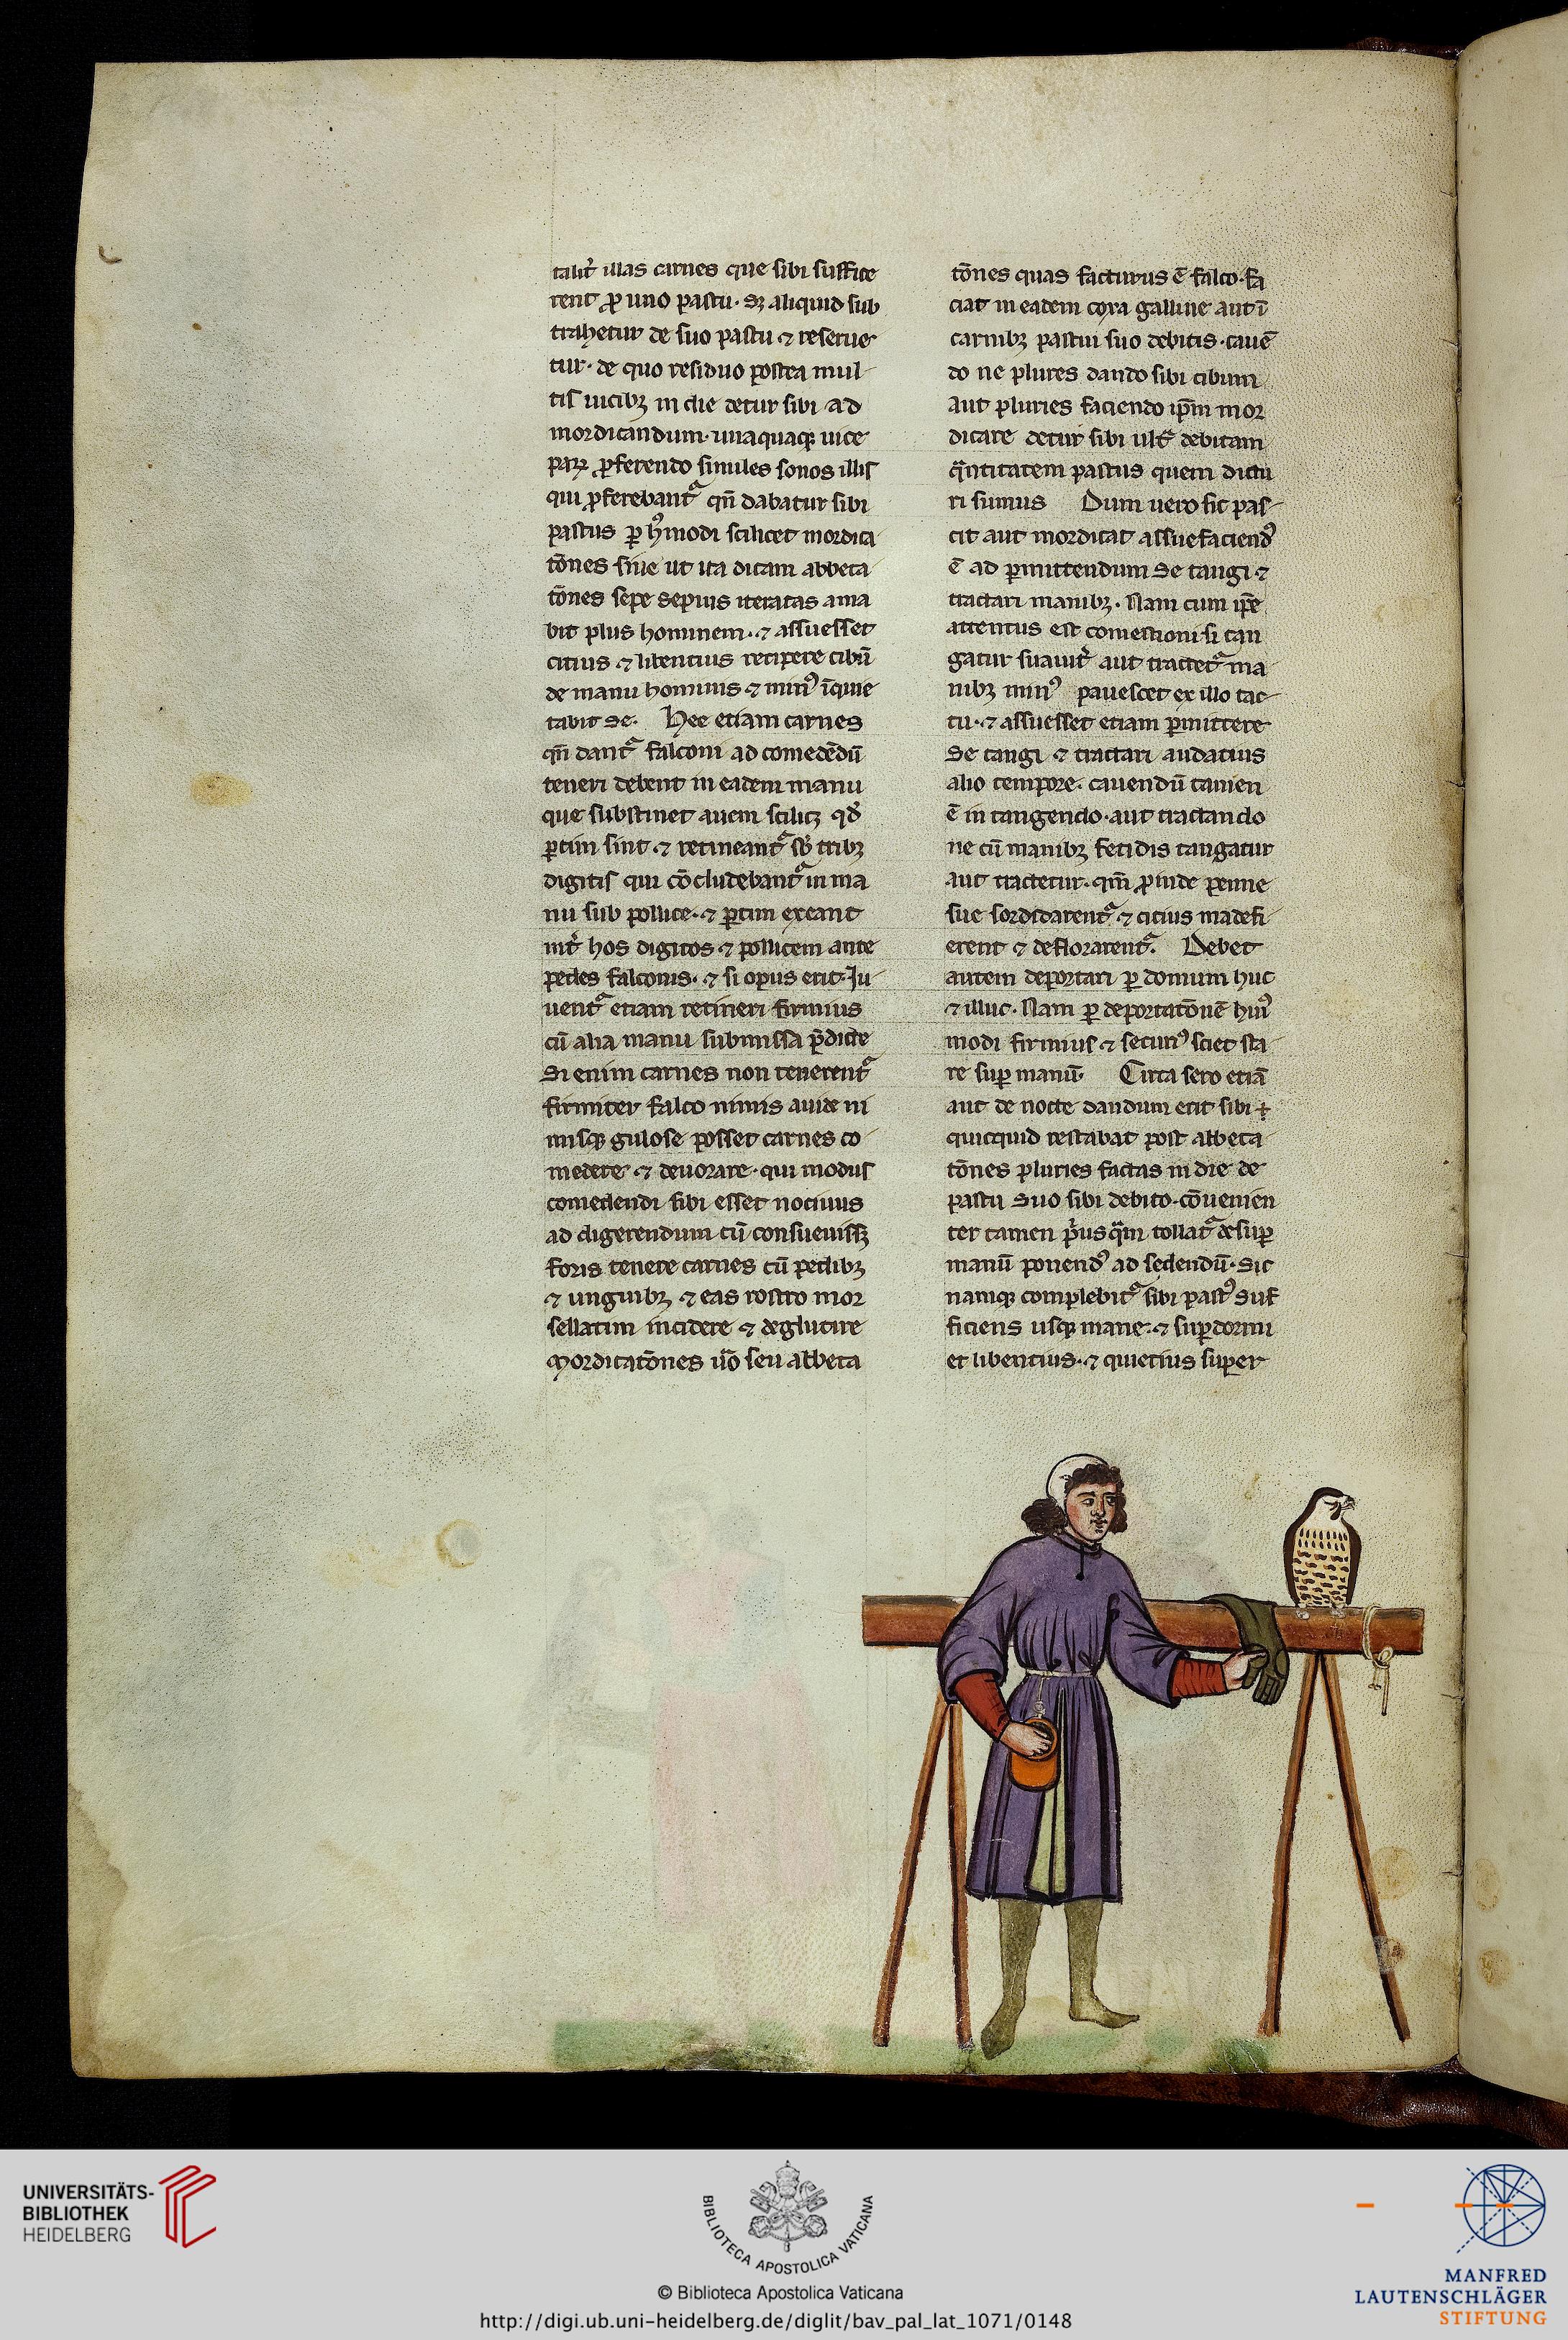 talit̃ illas carnes que sibi suffice
rent ꝓ uno pastu· sꝫ aliquid sub
trahetur de suo pastu ⁊ reserue
tur· de quo residuo postea mul
tis uicibꝫ in die detur sibi ad
mordicandum· unaquaqꝫ uice
ꝓferendo similes sonos illis
qui ꝓferebant᷑ qn̄ dabatur sibi
pastus ꝑ hꝰmodi scilicet mordica
tōnes siue ut ita dicam abbeca
tōnes sepe sepius iteratas ama
bit plus hominem· ⁊ assuesset
citius ⁊ libentius recipere cibū
de manu hominis ⁊ minꝰ īquie
tabit se· Hee etiam carnes
qn̄ dant᷑ falconi ad comedēdū
teneri debent in eadem manu
que substinet auem scilicꝫ qd̓
ꝑtim sint ⁊ retineant᷑ sb̓ tribꝫ
digitis qui cōcludebant᷑ in ma
nu sub pollice· ⁊ ꝑtim exeant
int̓ hos digitos ⁊ pollicem ante
pedes falconis· ⁊ si opus erit· Iu
uent᷑ etiam retineri firmius
cū alia manu submissa p̄dicte
Si enim carnes non tenerent᷑
firmiter falco nimis auide ni
misqꝫ gulose posset carnes co
medere ⁊ deuorare· qui modus
comedendi sibi esset nociuus
ad digerendum cū consueuissꝫ
foris tenere carnes cū pedibꝫ
⁊ unguibꝫ ⁊ eas rostro mor
sellatim incidere ⁊ deglutire
Mordicatōnes u̓o seu abbeca
tōnes quas facturus ē falco· fa
ciat in eadem coxa galline aut ī
carnibꝫ pastui suo debitis· cauē
do ne plures dando sibi cibum
aut pluries faciendo ip̄m mor
dicare detur sibi ult᷑ debitam
q̄ntitatem pastus quem dictu
ri sumus Dum uero sic pas
cit aut mordicat assuefaciendꝰ
ē ad ꝑmittendum se tangi ⁊
tractari manibꝫ· Nam cum ip̄e
attentus est comestioni si tan
gatur suauit̓ aut tractet᷑ ma
nibꝫ minꝰ pauescet ex illo tac
tu· ⁊ assuesset etiam ꝑmittere
se tangi ⁊ tractari audatius
alio tempore· cauendū tamen
ē in tangendo· aut tractando
ne cū manibꝫ fetidis tangatur
aut tractetur· qm̄ ꝓinde penne
sue sordidarent᷑ ⁊ citius madefi
erent ⁊ deflorarent᷑. Debet
autem deportari ꝑ domum huc
⁊ illuc· Nam ꝑ deportatōnē hui̓
modi firmius ⁊ securiꝰ sciet sta
re suꝑ manū· Circa sero etiā
aut de nocte dandum erit sibi
quicquid restabat post abbeca
tōnes pluries factas in die de
pastu suo sibi debito· cōuenien
ter tamen p̓us q̄m tollat᷑ desuꝑ
manū ponendꝰ ad sedendū· Sic
namqꝫ complebit᷑ sibi pastꝰ suf
ficiens usqꝫ mane· ⁊ suꝑdormi
et libentius· ⁊ quietius super
UNIVERSITÄTS-
BIBLIOTHEK
HEIDELBERG
BIBLIOTECA APOSTOLICA VATICANA
© Biblioteca Apostolica Vaticana
http://digi.ub.uni-heidelberg.de/diglit/bav_pal_lat_1071/0148
MANFRED
LAUTENSCHLÄGER
STIFTUNG